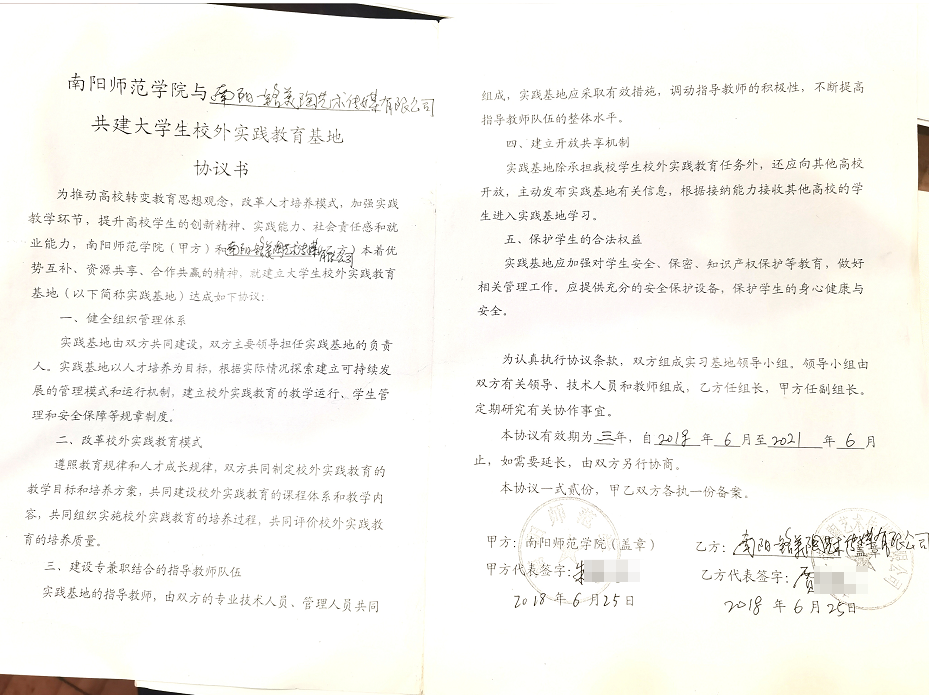 南阳师范学院与南阳 美陶艺术传媒有限公司
共建大学生校外实践教育基地
协议书
为推动高校转变教育思想观念，改革人才培养模式，加强实践
教学环节，提升高校学生的创新精神、实践能力、社会责任感和就
业能力，南阳师范学院（甲方）和南阳 美陶艺术传媒有限公司（乙方）本着优
势互补、资源共享、合作共赢的精神，就建立大学生校外实践教育
基地（以下简称实践基地）达成如下协议：
一、健全组织管理体系
实践基地由双方共同建设，双方主要领导担任实践基地的负责
人。实践基地以人才培养为目标，根据实际情况探索建立可持续发
展的管理模式和运行机制，建立校外实践教育的教学运行、学生管
理和安全保障等规章制度。
二、改革校外实践教育模式
遵照教育规律和人才成长规律，双方共同制定校外实践教育的
教学目标和培养方案，共同建设校外实践教育的课程体系和教学内
容，共同组织实施校外实践教育的培养过程，共同评价校外实践教
育的培养质量。
三、建设专兼职结合的指导教师队伍
实践基地的指导教师，由双方的专业技术人员、管理人员共同
组成，实践基地应采取有效措施，调动指导教师的积极性，不断提高
指导教师队伍的整体水平。
四、建立开放共享机制
实践基地除承担我校学生校外实践教育任务外，还应向其他高校
开放，主动发布实践基地有关信息，根据接纳能力接收其他高校的学
生进入实践基地学习。
五、保护学生的合法权益
实践基地应加强对学生安全、保密、知识产权保护等教育，做好
相关管理工作。应提供充分的安全保护设备，保护学生的身心健康与
安全。
为认真执行协议条款，双方组成实习基地领导小组。领导小组由
双方有关领导、技术人员和教师组成，乙方任组长，甲方任副组长。
定期研究有关协作事宜。
本协议有效期为三年，自2018年6月至2021年6月
止，如需要延长，由双方另行协商。
本协议一式贰份，甲乙双方各执一份备案。
甲方：南阳师范学院（盖章）
甲方代表签字：朱
2018年6月25日
乙方：南阳 美陶艺术传媒有限公司（盖章）
乙方代表签字：贾
2018年6月25日